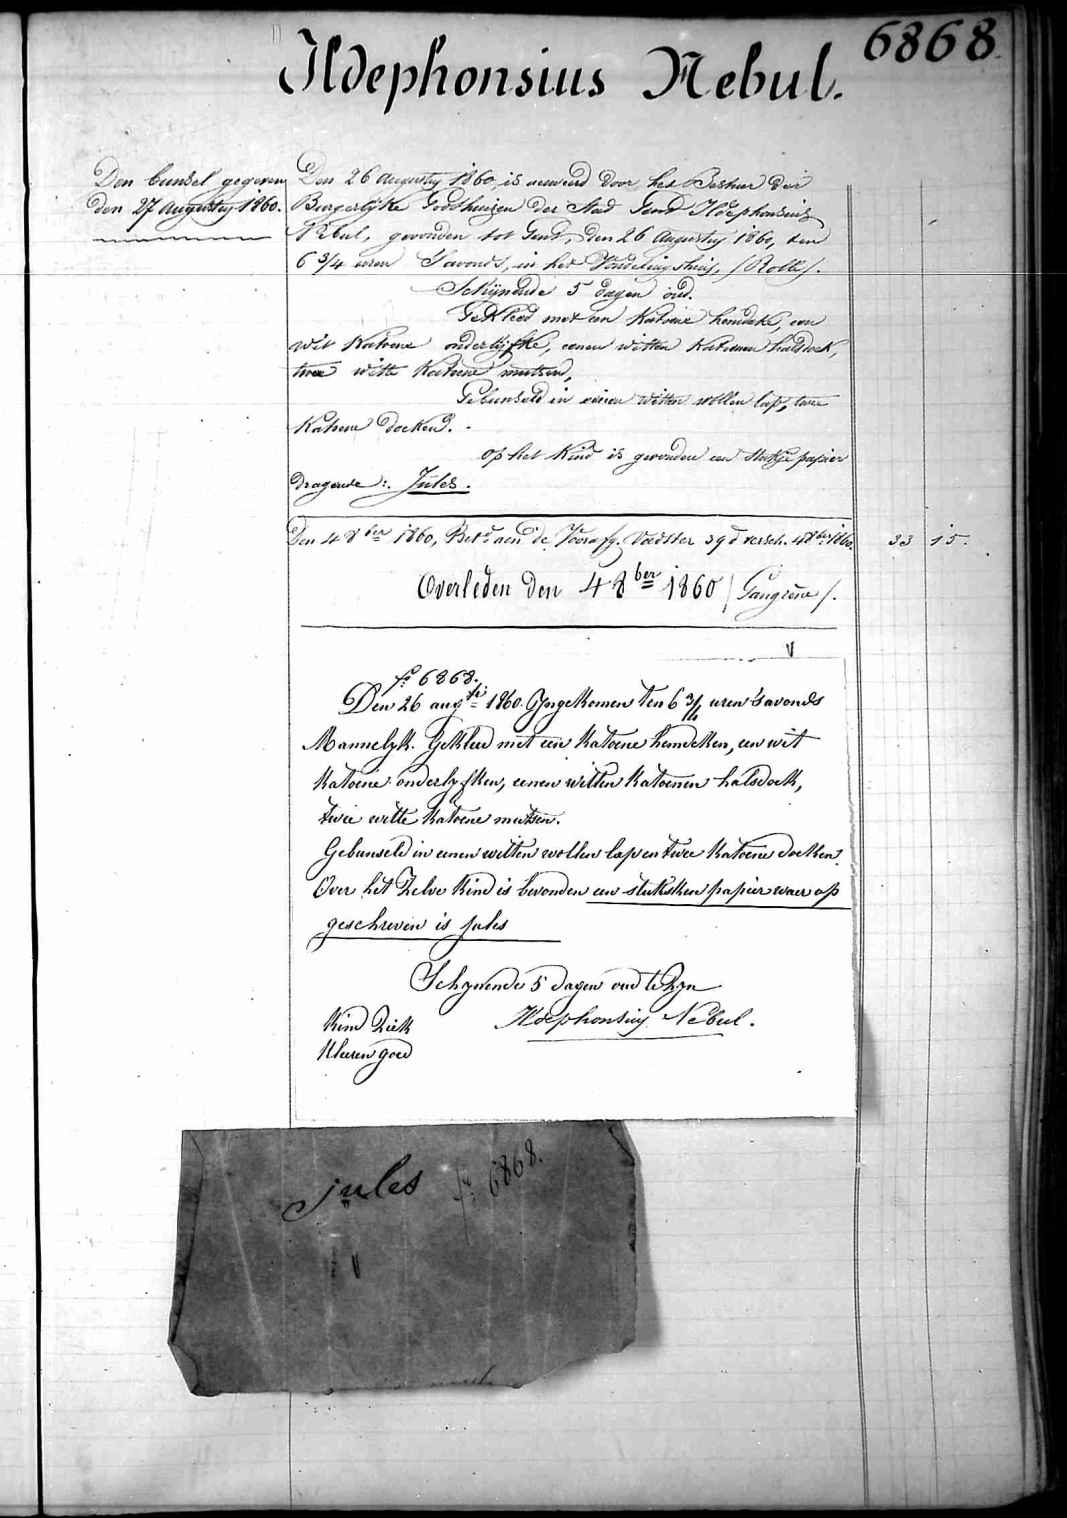 6868.
Ildephonsius Nebul.
Den bunsel gegeven
den 27 augusty 1860.
Den 26 augusty 1860, is aenveerd door het Bestuer der
Burgerlyke Godshuizen der Stad Gend Ildephonsius
Nebul, gevonden tot Gend, den 26 Augusty 1860, ten
6 3/4 uren S'avonds, in het Vondelingshuis, (Rolle).
Schijnende 5 dagen oud.
Gekleed met een katoene hemdeke, een
wit katoene onderlyfke, eenen witten katoenen halsdoek,
twee witte katoene mutsen,
Gebunseld in eenen witten wollen lap, twee
katoene doeken.
op het kind is gevonden een stukje papier
dragende: Jules.
Den 4 8ber 1860, Bet. aen de Voorafg. Voedster 39 d versch. 4 8ber 1860. 33 15.
Overleden den 4 8ber 1860 (Gangrène).
V
fo 6868.
Den 26 augti 1860. Yngekomen ten 6 3/4 uren 's avonds
Mannelyk. Gekleed met een katoene hemdeken, een wit
katoene onderlyfken, eenen witten katoenen halsdoek,
twee witte katoene mutsen.
Gebunseld in eenen witten wollen lap en twee katoene doeken.
Over het zelve kind is bevonden een stuksken papier waer op
geschreven is jules
Schynende 5 dagen oud te zyn
Kind Ziek
Ildephonsius Nebul.
Kleeren goed
jules
fo 6868.
V